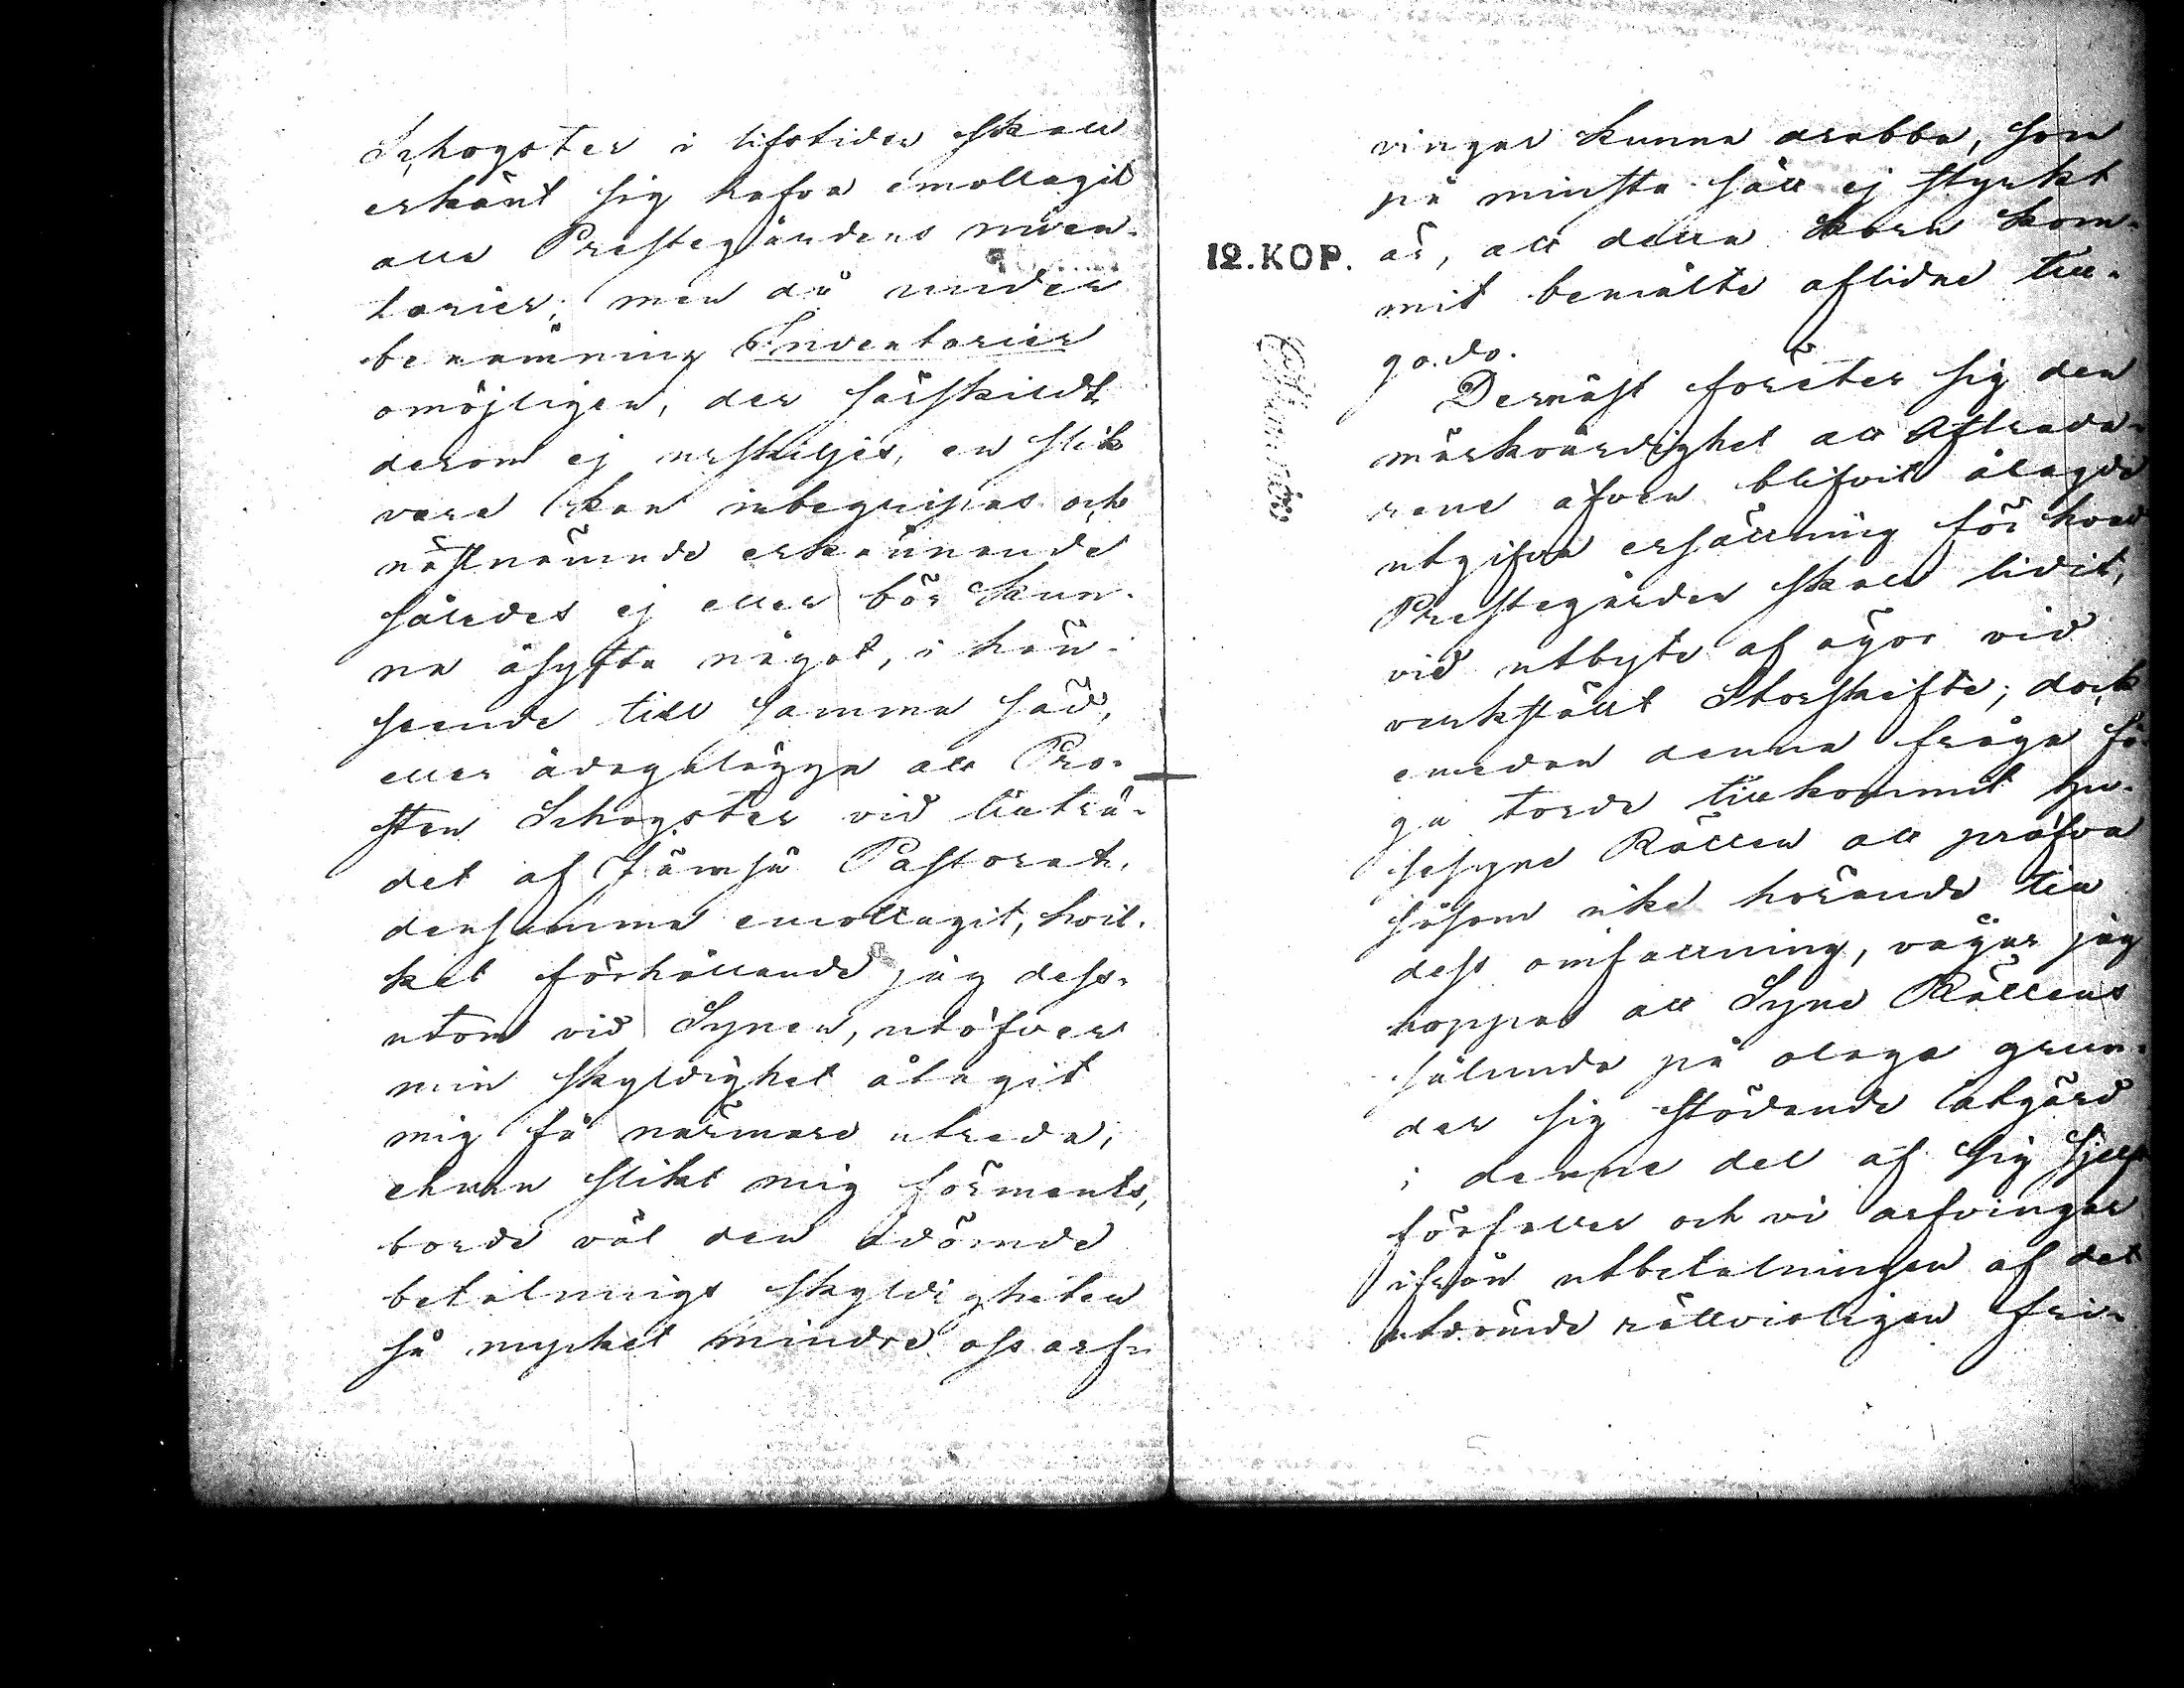 Schogster i lifstiden skall
erkänt sig hafva emottagit
alla Prestegårdens inven-
tarier; men då under
benämning Inventarier
omöjligen, der särskildt
derom ej urskiljes, en slik
vara kan inbegripas och
nästnämnde erkännande
således ej eller bör kun-
na åsyfta något, i hän-
seende till samma säd,
eller ådagalägga att Pro-
sten Schogster vid tillträ-
det af Jämsä Pastorat,
densamma emottagit, hvil-
ket förhållande jag dess-
utom vid Synen, utöfver
min skyldighet åtagit
mig få närmare utreda;
ehuru slikt mig förments,
borde väl den ådömde
betalnings skyldigheten
så mycket mindre oss arf-
vingar kunna drabba, som
på minsta sätt ej styrkt
är, att detta korn kom-
mit bemälte aflidne till-
godo.
12. KOP.
Dernäst företer sig den
märkvärdighet att Afträda-
rene äfven blifvit ålagde
utgifva ersättning för hvad
Prestegården skall lidit,
vid utbyte af ägor vid
verkstält Storskifte; dock
emedan denna fråga få-
ga torde tillkommit hu-
sesyne Rätten att pröfva
såsom icke hörande till
dess omfattning, vågar jag
hoppas att Syne Rättens
sålunda på olaga grun-
der sig stödande åtgärd
i denne del af sig sjelf
förfaller och vi arfvingar
ifrån utbetalningen af det
utdömde rättvisligen fri-